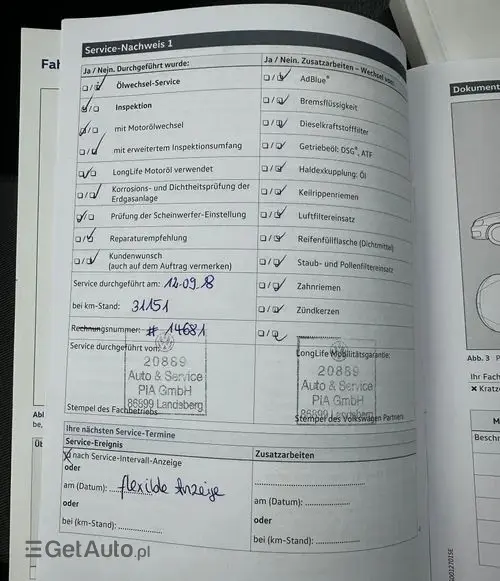 Service-Nachweis 1
Ja / Nein. Durchgeführt wurde:
Ölwechsel-Service
Inspektion
mit Motorölwechsel
mit erweitertem Inspektionsumfang
LongLife Motoröl verwendet
Korrosions- und Dichtheitsprüfung der
Erdgasanlage
Prüfung der Scheinwerfer-Einstellung
Reparaturempfehlung
Kundenwunsch
(auch auf dem Auftrag vermerken)
Service durchgeführt am: 12.09.18
bei km-Stand: 31151
Rechnungsnummer: # 14681
Service durchgeführt von:
20889
Auto & Service
PIA GmbH
86899 Landsberg
Stempel des Fachbetriebs
Ja / Nein. Zusatzarbeiten – Wechsel von:
AdBlue®
Bremsflüssigkeit
Dieselkraftstofffilter
Getriebeöl: DSG®, ATF
Haldexkupplung: Öl
Keilrippenriemen
Luftfiltereinsatz
Reifenfüllflasche (Dichtmittel)
Staub- und Pollenfiltereinsatz
Zahnriemen
Zündkerzen
LongLife Mobilitätsgarantie:
20889
Auto & Service
PIA GmbH
86899 Landsberg
Stempel des Volkswagen Partners
Ihre nächsten Service-Termine
Service-Ereignis
nach Service-Intervall-Anzeige
oder
am (Datum): flexible Anzeige
oder
bei (km-Stand):
Zusatzarbeiten
am (Datum):
oder
bei (km-Stand):
Fah
Dokument
Abb. 3
Ihr Fach
✖ Kratze
Beschr
GetAuto.pl